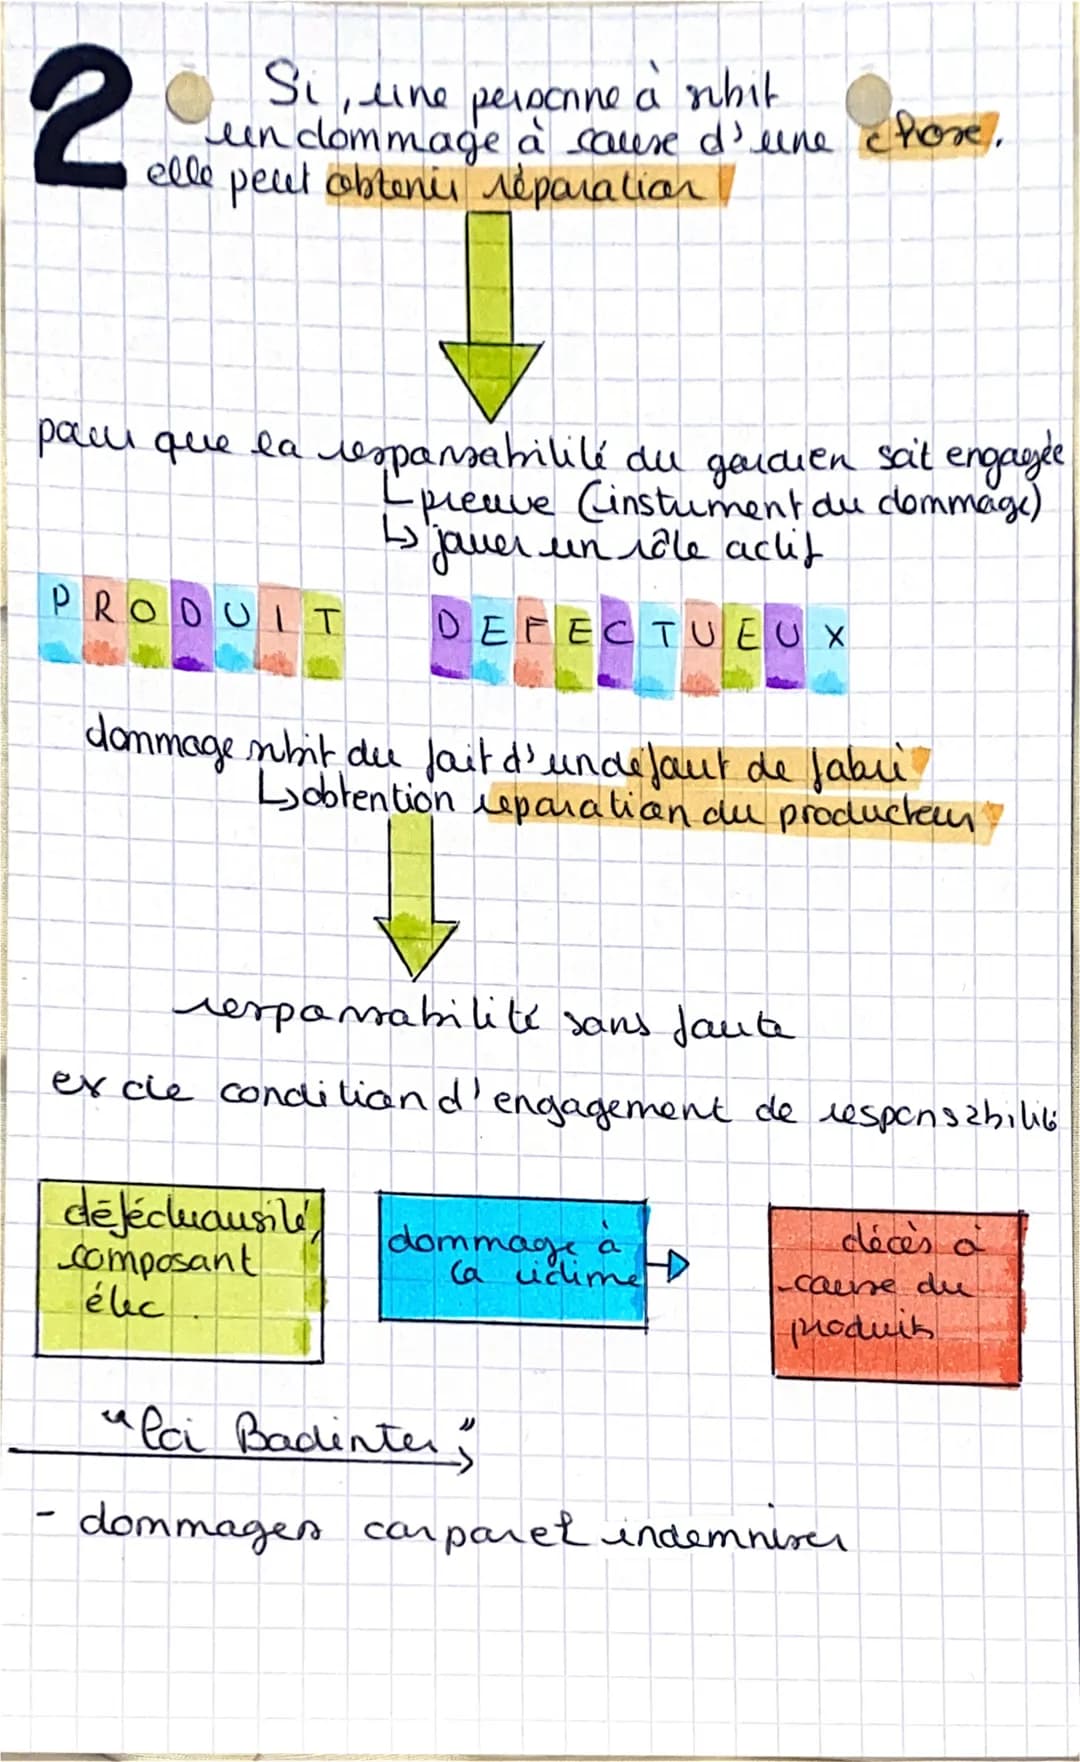 2
Si, une personne à subit
un dommage à cause d'une chose.
elle peut obtenir réparation
pour que la responsabilité du gardien soit engagée
↳ preuve (instument du dommage)
↳ jouer un rôle actif
PRODUIT DEFECTUEUX
dommage subit du fait d'un défaut de fabri
↳ obtention reparation du producteur
responsabilité sans faute
ex de condition d'engagement de responsabilité
défectuosité,
composant
élec.
dommage à
la victime
décès à
cause du
produit
"loi Badinter"
- dommages corporel indemniser